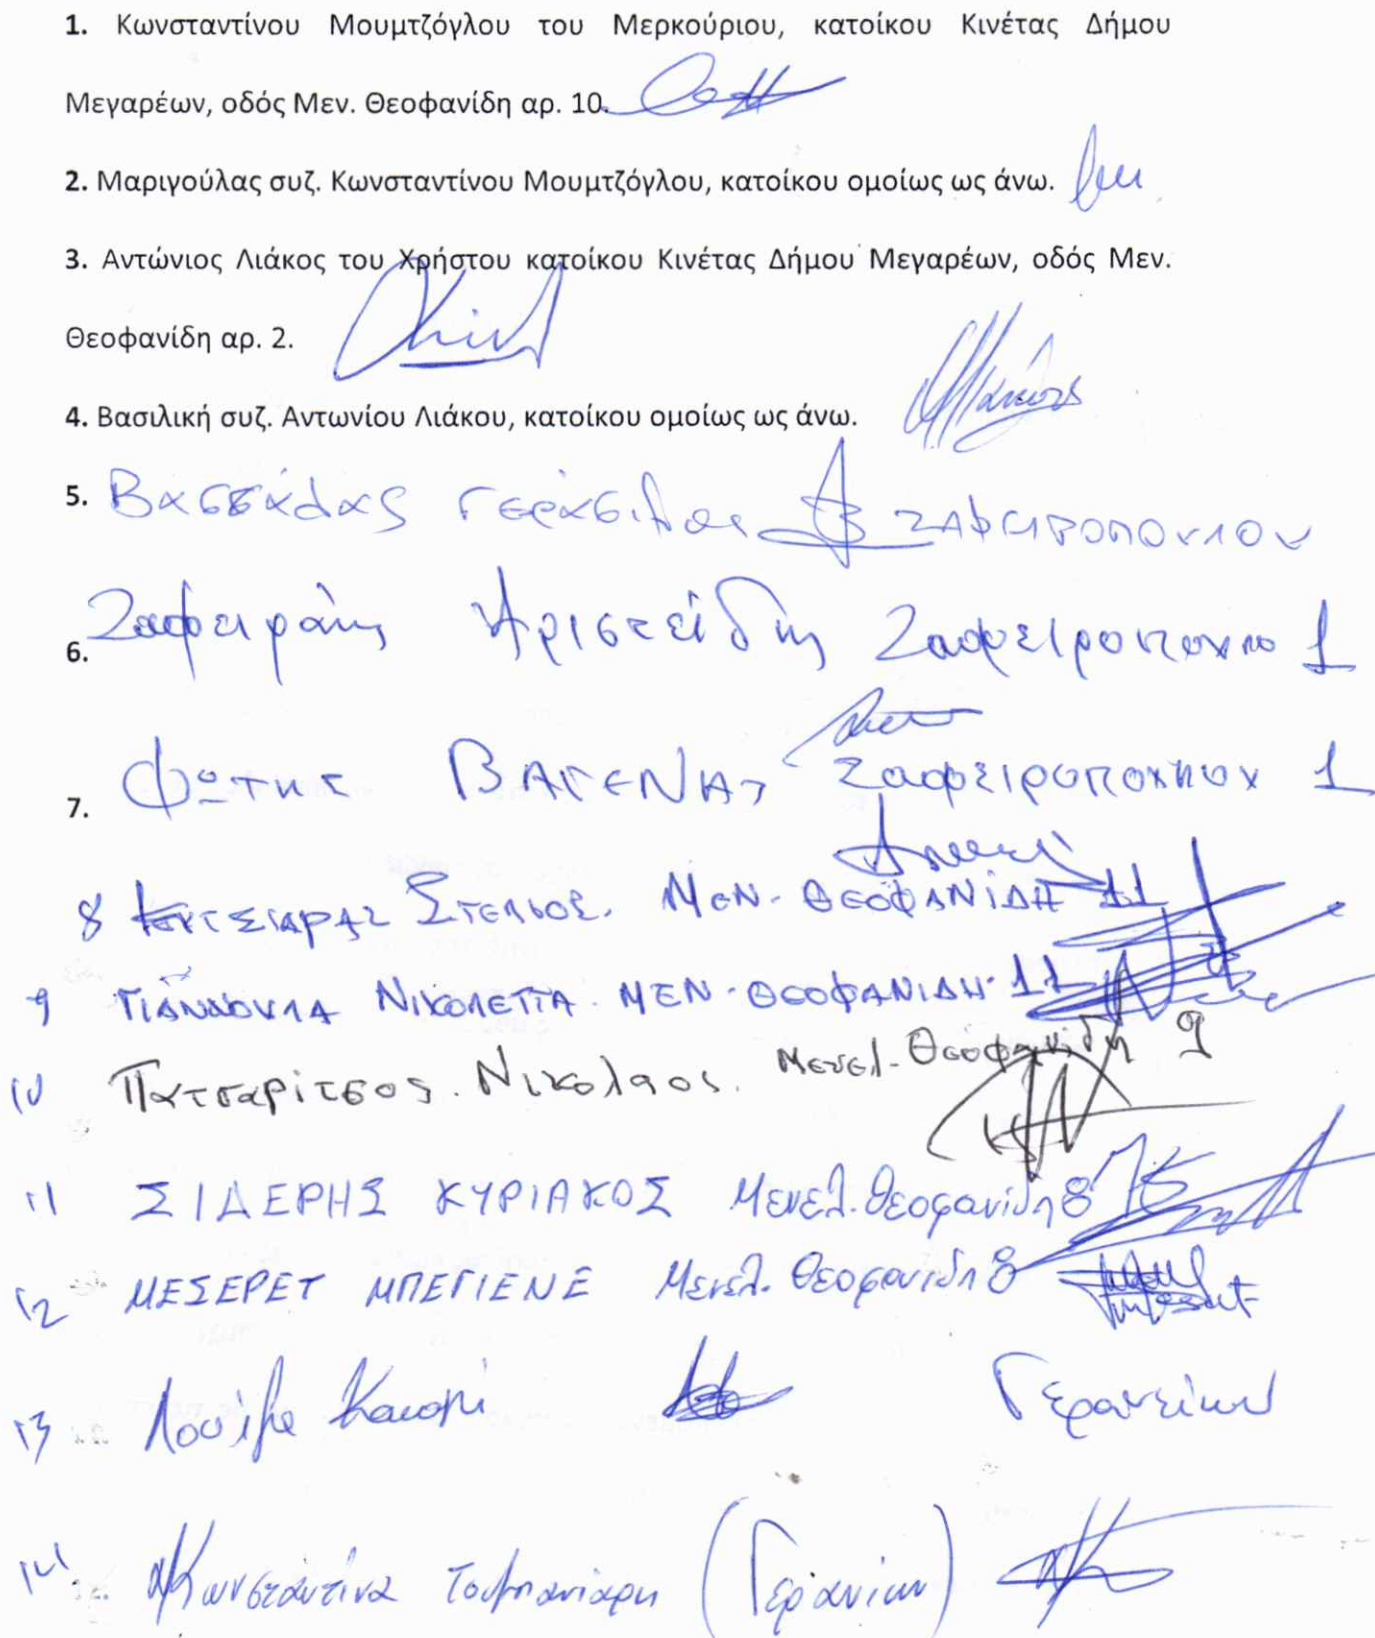 1. Κωνσταντίνου Μουμτζόγλου του Μερκούριου, κατοίκου Κινέτας Δήμου
Μεγαρέων, οδός Μεν. Θεοφανίδη αρ. 10.
2. Μαριγούλας συζ. Κωνσταντίνου Μουμτζόγλου, κατοίκου ομοίως ως άνω.
3. Αντώνιος Λιάκος του Χρήστου κατοίκου Κινέτας Δήμου Μεγαρέων, οδός Μεν.
Θεοφανίδη αρ. 2.
4. Βασιλική συζ. Αντωνίου Λιάκου, κατοίκου ομοίως ως άνω.
5. Γεράσιμος ΖΑΦΕΙΡΟΠΟΥΛΟΥ
6. Ζαφειράκης Αριστείδης Ζαφειροπουλο 1
7. Φώτης ΒΑΓΕΝΑΣ Ζαφειροπουλου 1
8 ΣΤΕΛΙΟΣ. ΜΕΝ. ΘΕΟΦΑΝΙΔΗ 11
9 ΓΙΑΝΝΟΥΛΑ ΝΙΚΟΛΕΤΤΑ. ΜΕΝ. ΘΕΟΦΑΝΙΔΗ 11
10 Πατσαρίτσος. Νικολαος. Μενελ. Θεοφανιδη 9
11 ΣΙΔΕΡΗΣ ΚΥΡΙΑΚΟΣ Μενελ. Θεοφανίδη 8
12 ΜΕΣΕΡΕΤ ΜΠΕΓΙΕΝΕ Μενελ. Θεοφανιδη 8
13 Γερανείων
14 Κωνσταντίνα (Γερανίων)